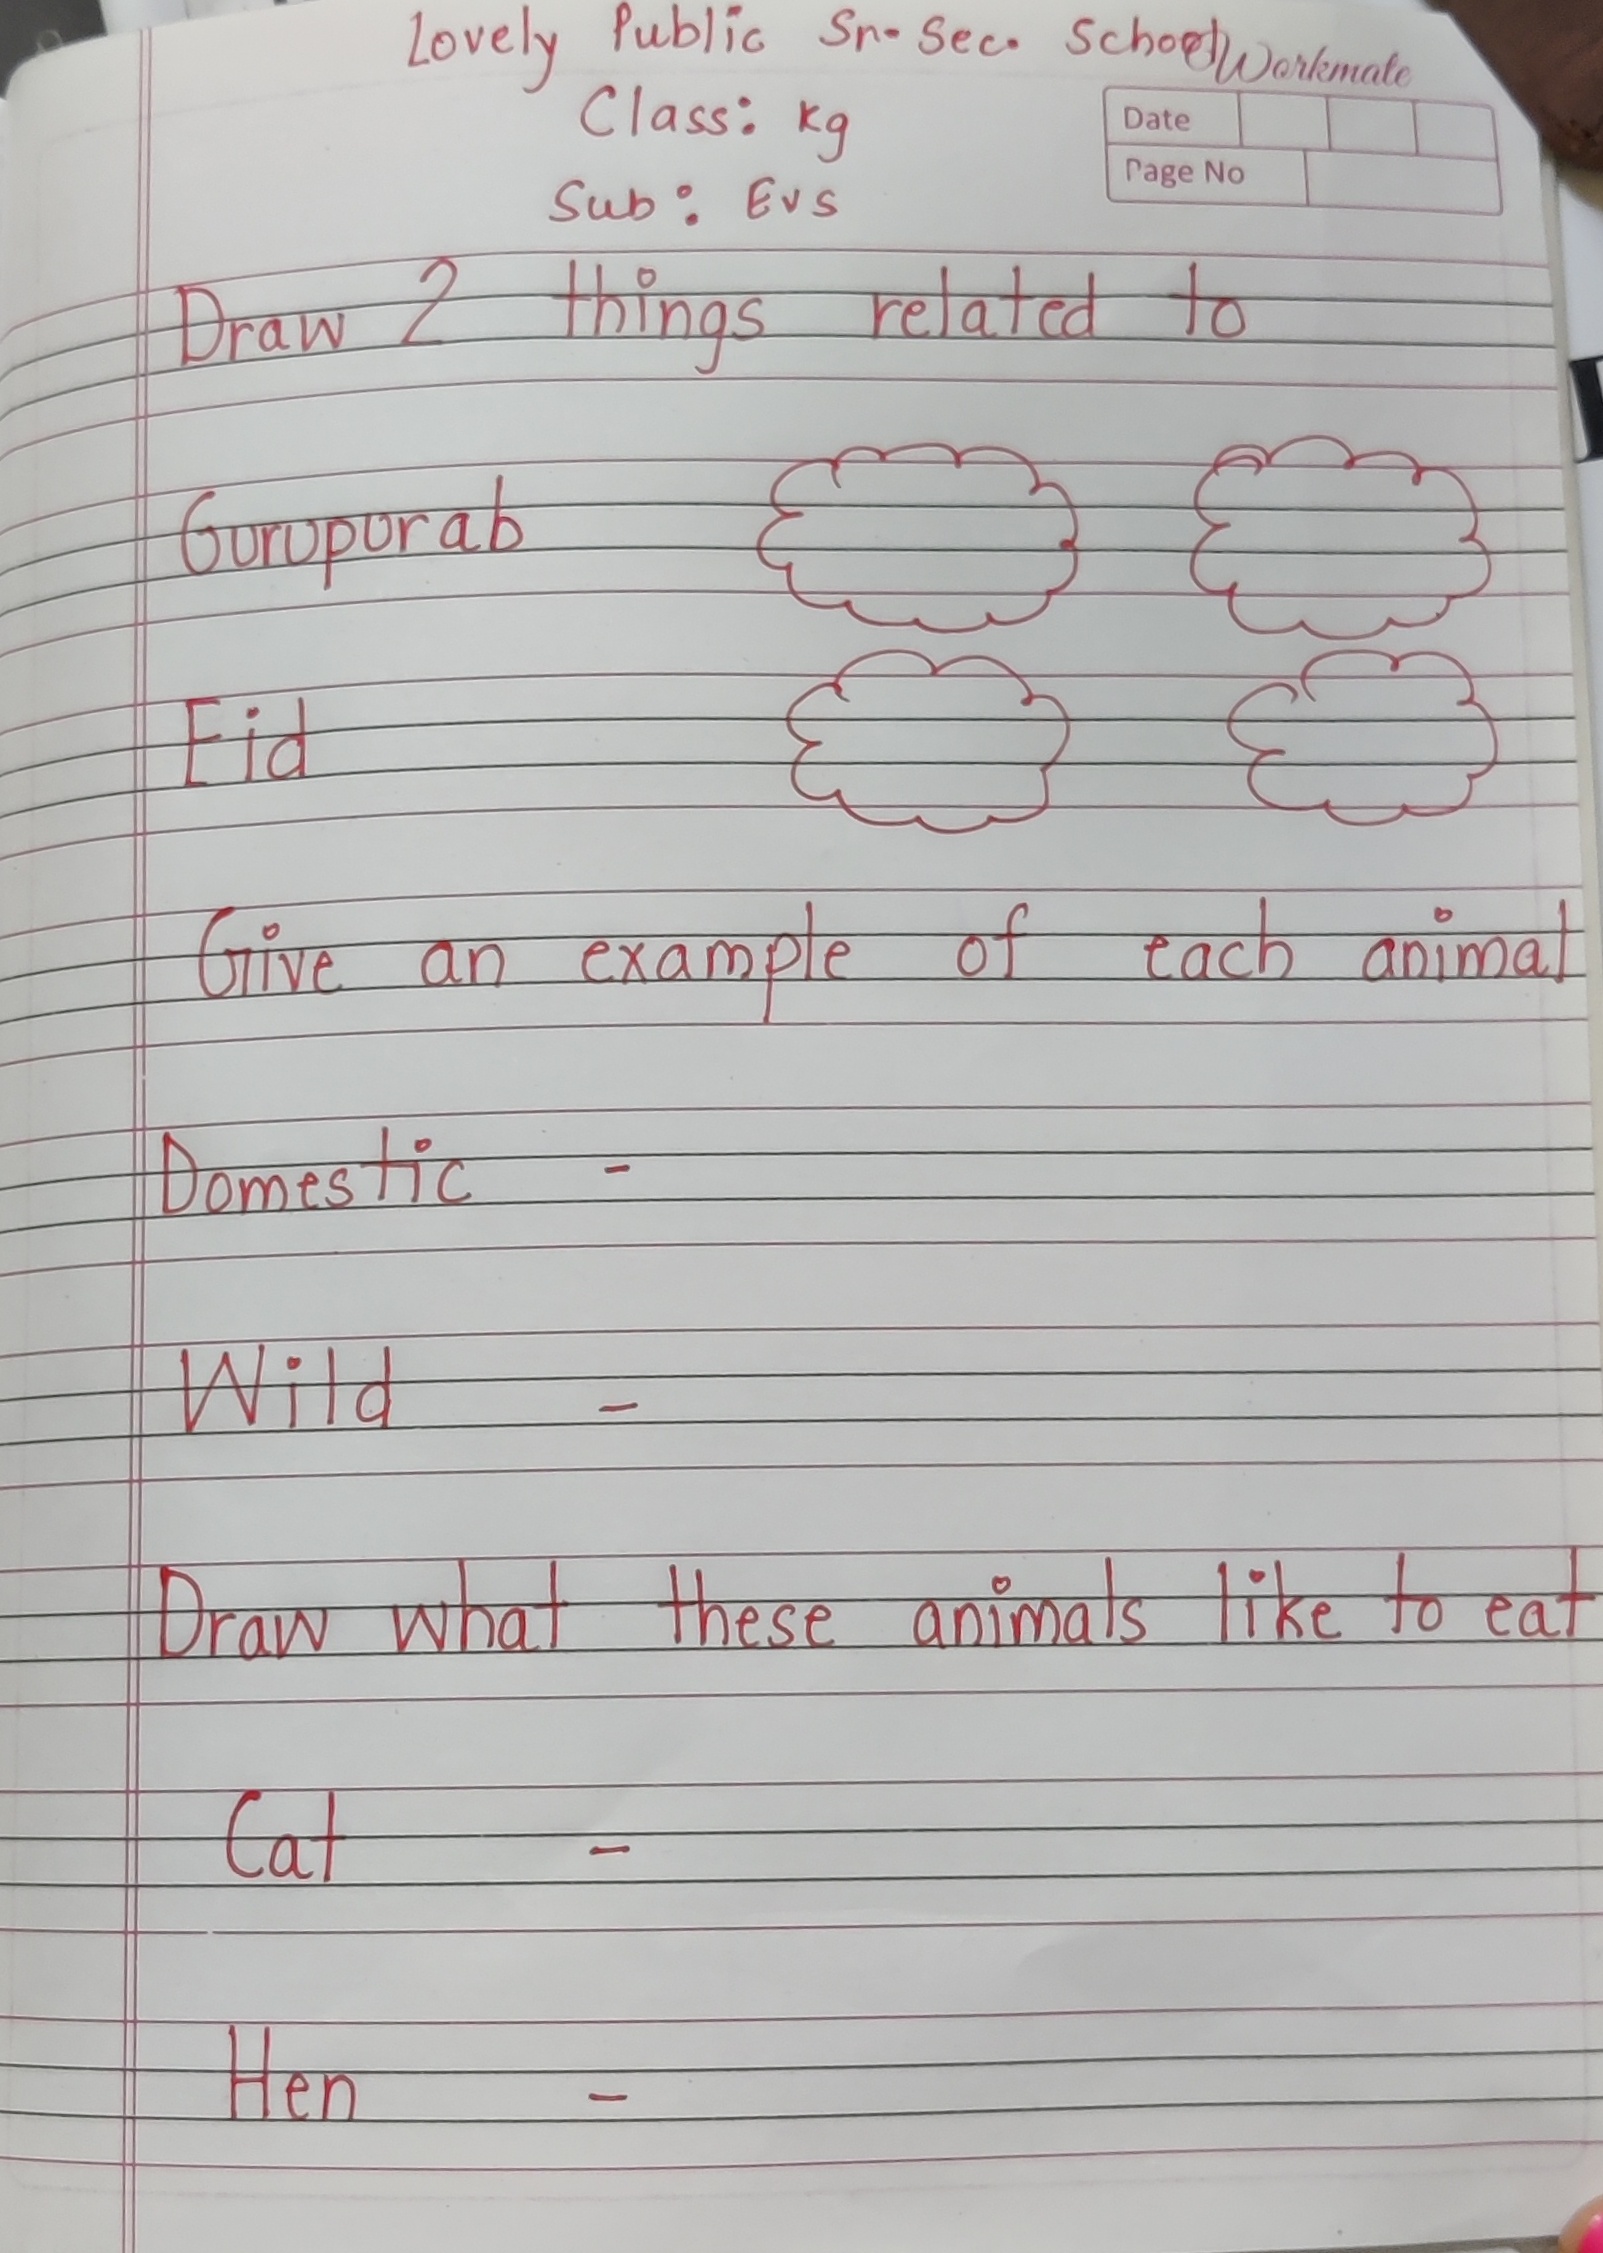 Lovely Public Sr. Sec. School
Workmate
Class: Kg
Date
Page No
Sub: Evs
Draw 2 things related to
Guruporab
Eid
Give an example of each animal
Domestic -
Wild -
Draw what these animals like to eat
Cat -
Hen -